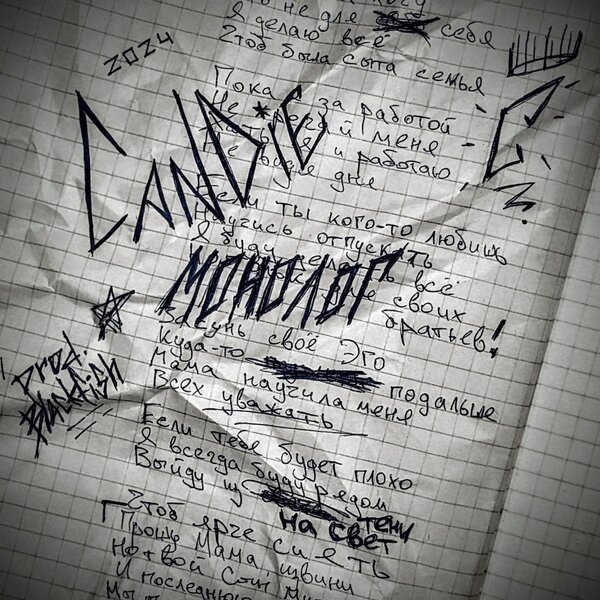 не для себя
Я делаю всё
Чтоб была сыта семья
2024
Пока я за работой
Не меня
и работаю
дня
CANDiE
Если ты кого-то любишь
Научись отпускать
Я буду всё
своих
братьев!
МОНОЛОГ
Засунь своё Эго
Куда-то подальше
Мама научила меня
Всех уважать
prod.
Blackfish
Если тебе будет плохо
Я всегда буду рядом
Выйду из тени
на свет
Чтоб ярче сиять
Прошу Мама, извини
Но твой Сын
И последнюю
Мы